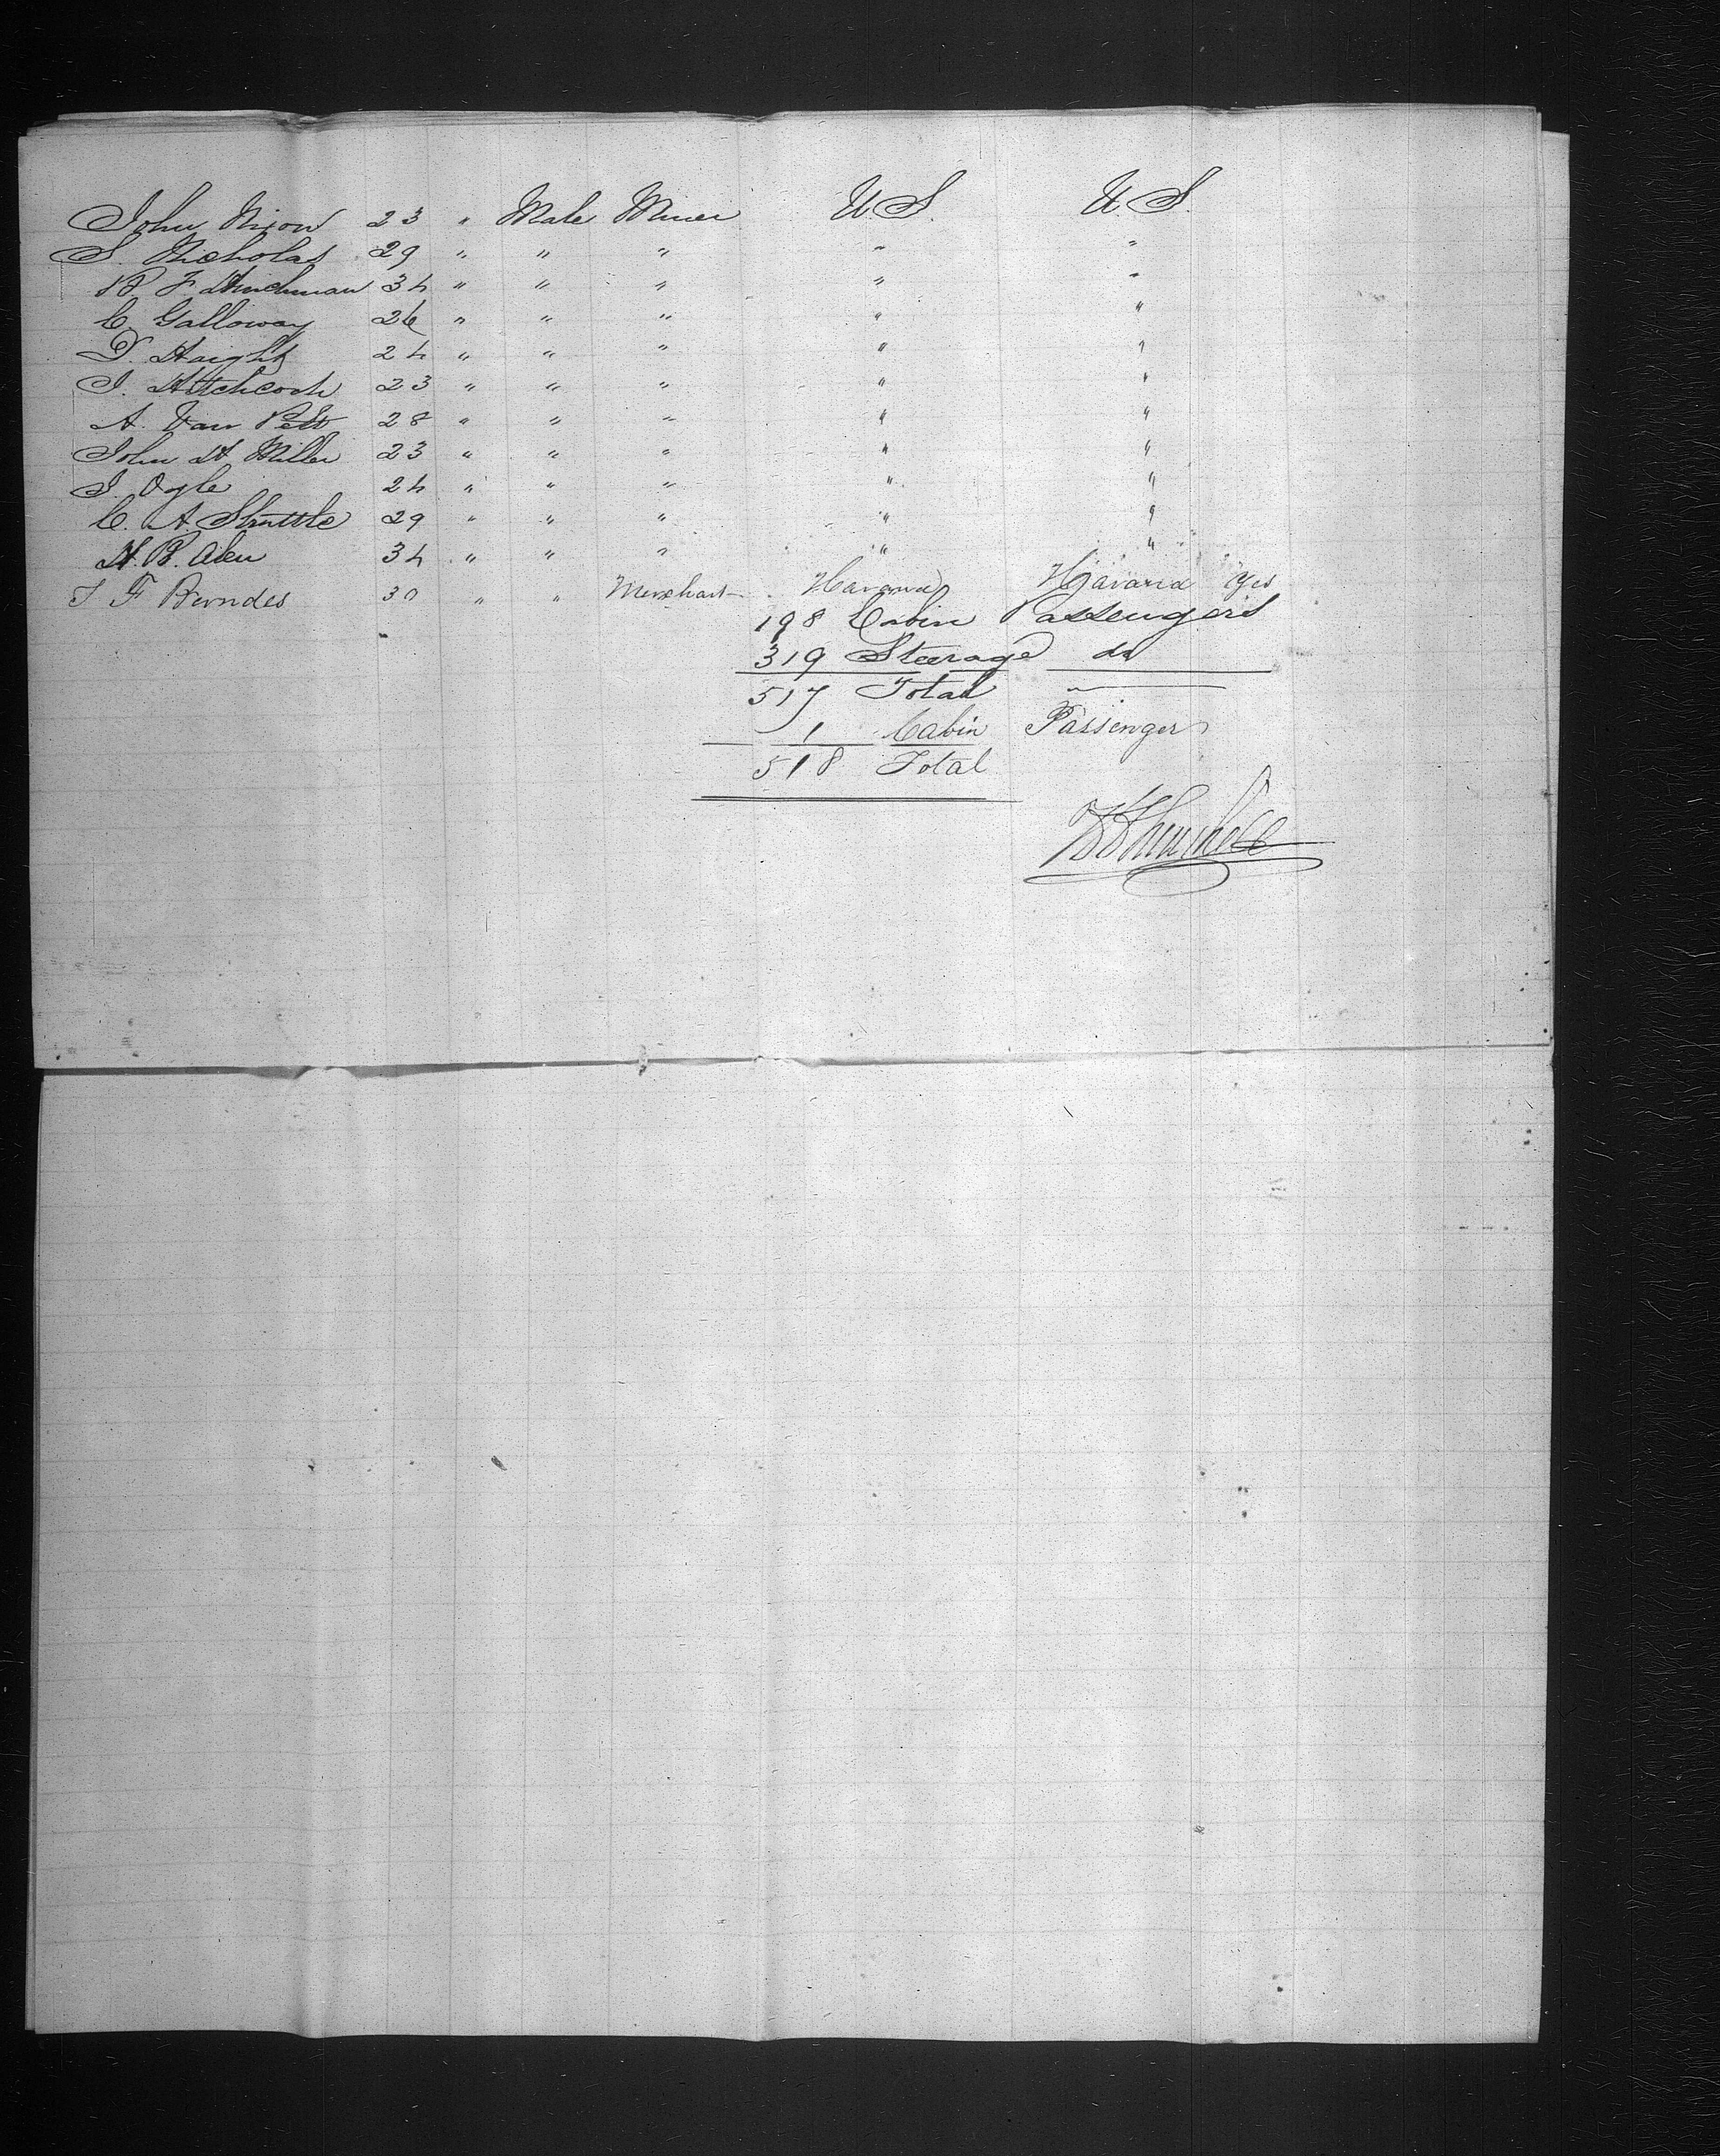 John Nixon 23 " Male Miner U.S. U.S.
S. Nicholas 29 " " " " "
B F Hinchman 34 " " " " "
C. Galloway 26 " " " " "
D. Haight 24 " " " " "
J. Hitchcock 23 " " " " "
A. Van Pelt 28 " " " " "
John H Miller 23 " " " " "
J. Ogle 24 " " " " "
C. A. Shuttle 29 " " " " "
H. B. Alen 34 " " " " "
J F Berndes 30 " " Merchant Havana Havana Yes
198 Cabin Passengers
319 Steerage do
517 Total "
1 Cabin Passenger
518 Total